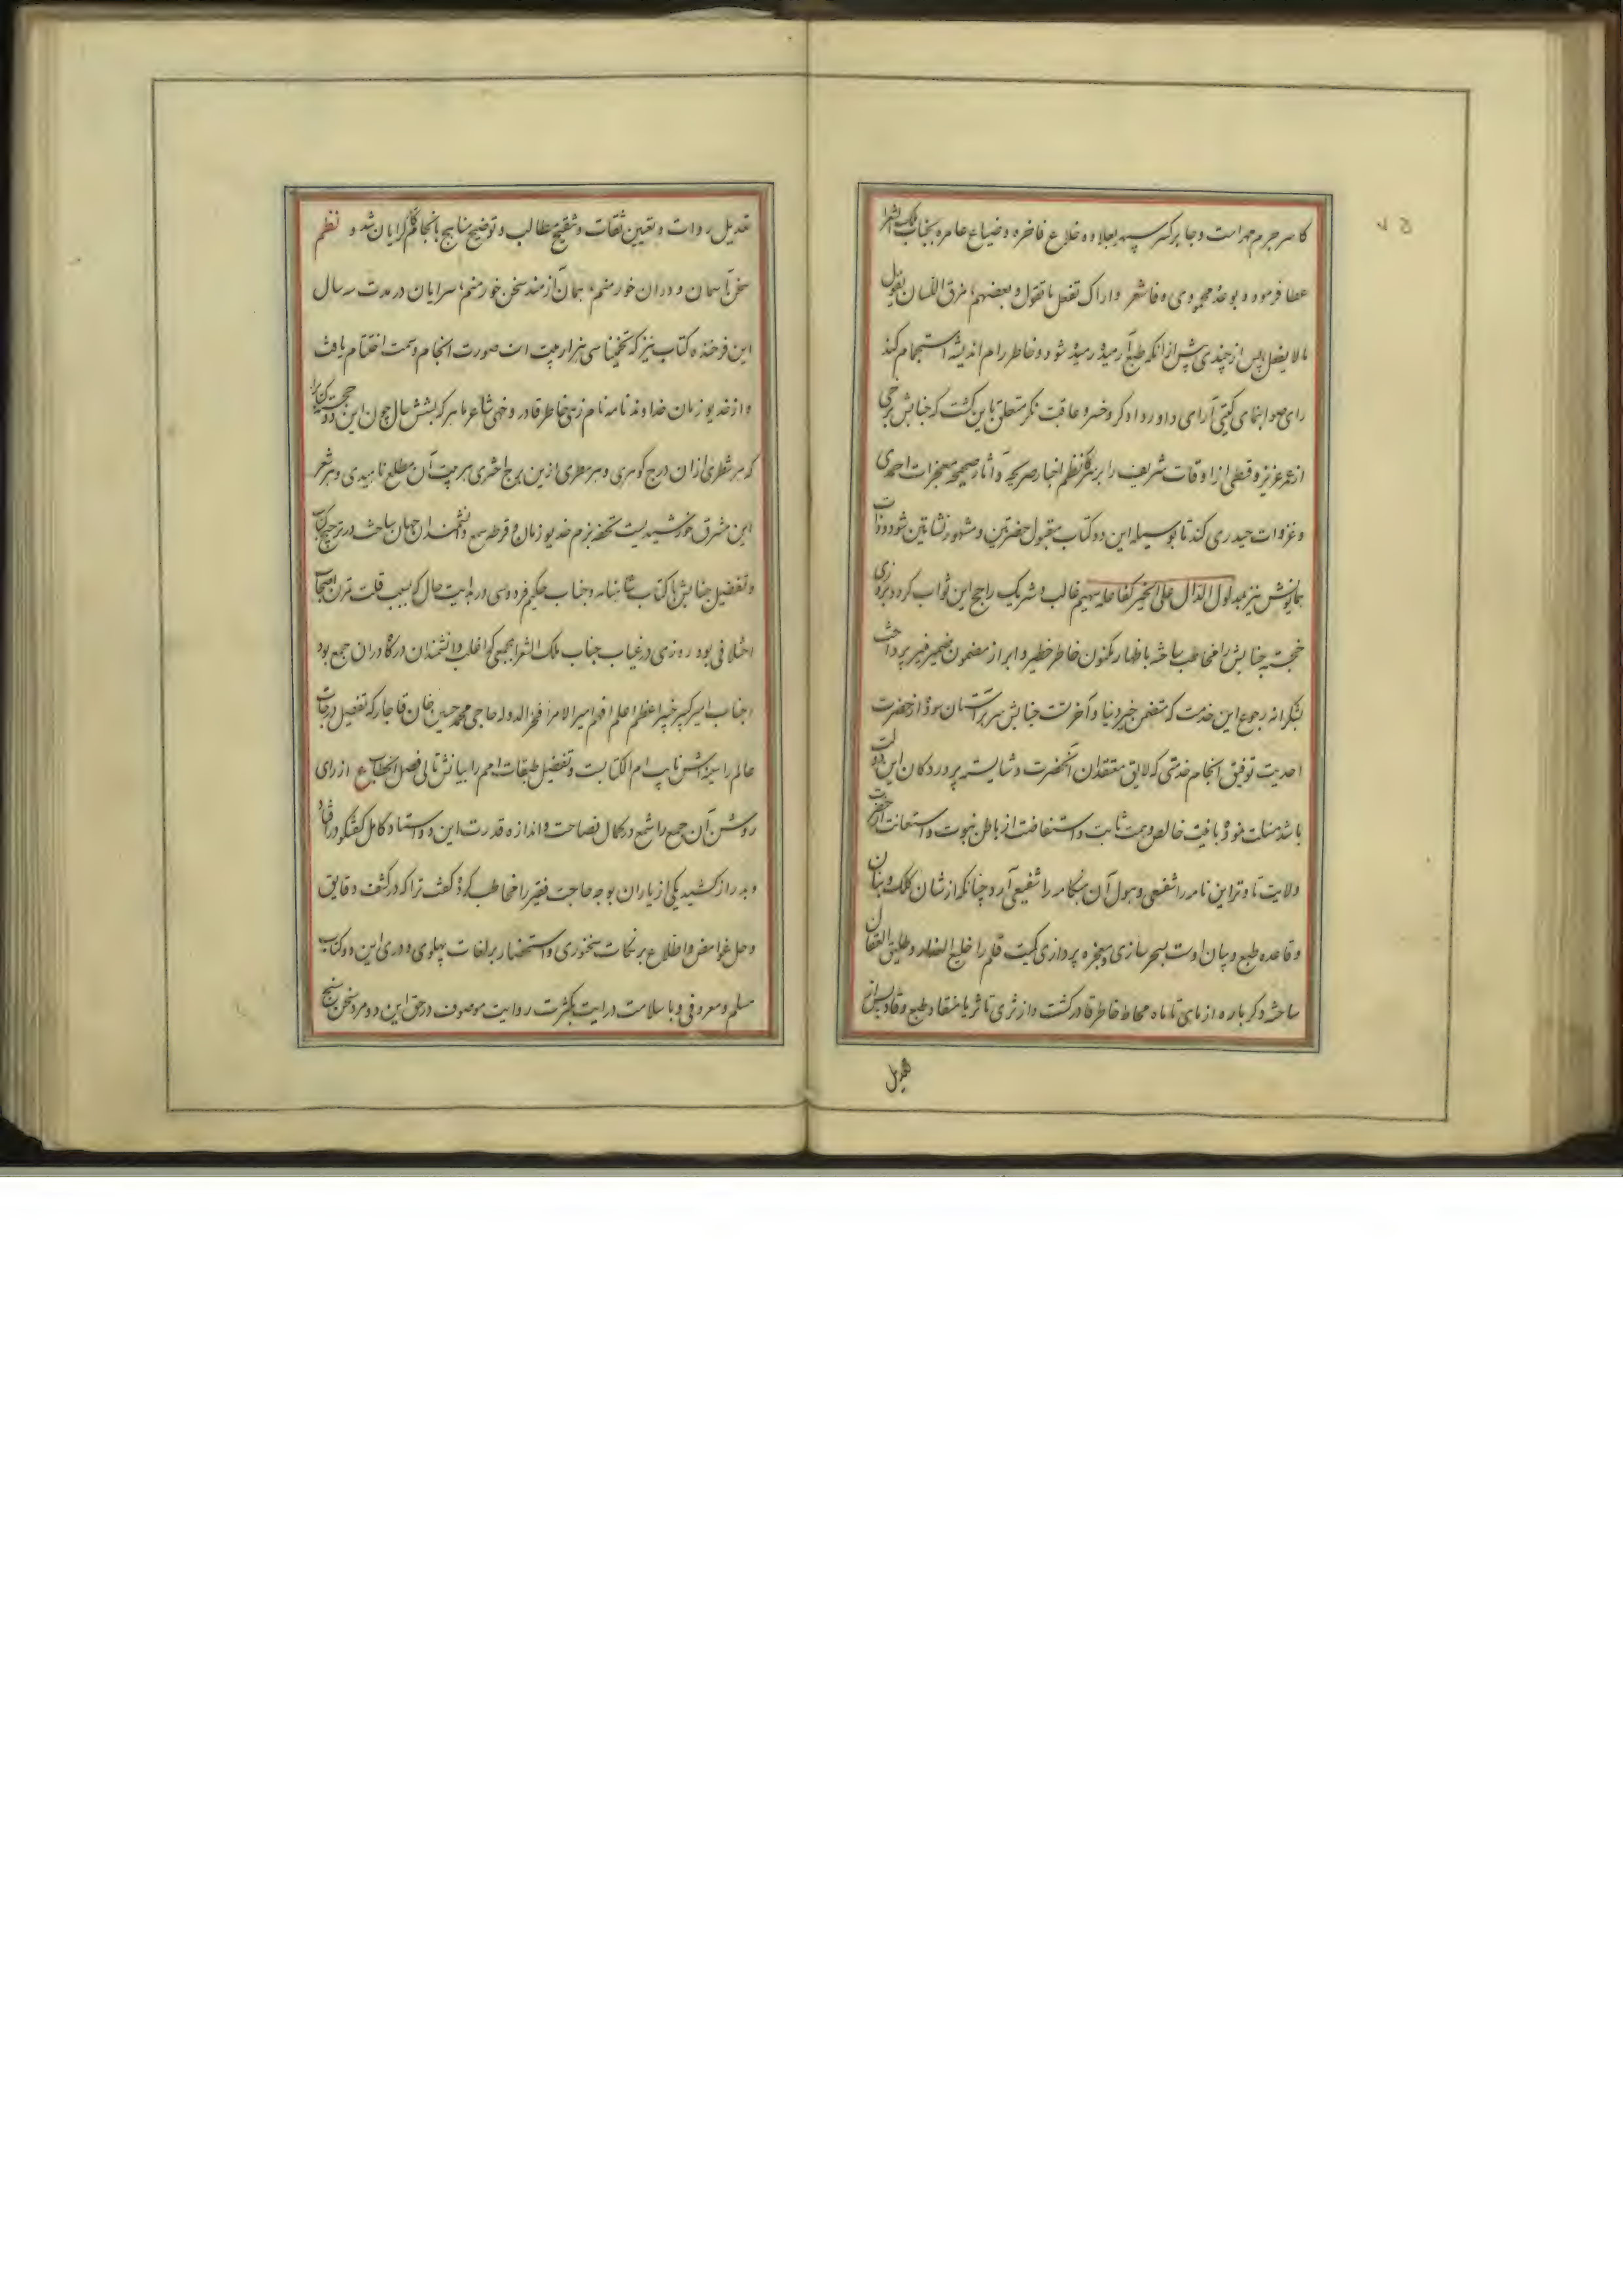 کاسر جرم مهر است و جابر کسر سپهر بعلاوه خلاع فاخره و ضیاع عامره بجناب ملک الشعرا
عطا فرموده و بوعده محمود وفا شعر واراک تفعل ما تقول و بعضهم مذق اللسان یقول
ما لا یفعل پس از چندی پیش از آنکه طبع آرمیده رمیده شود و خاطر رام اندیشه استجمام کند
رای صوابنمای گیتی آرای داور دادگر و خسرو عاقبت نگر متعلق باین گشت که جنابش برخی
از عمر عزیز و قسطی از اوقات شریف را بر سر کار نظم اخبار صریحه و آثار صحیحه معجزات احمدی
و غزوات حیدری کند تا بوسیله این دو کتاب مقبول حضرتین و مشهور نشاتین شود و ذات
همایونش نیز بمدلول الدال علی الخیر کفاعله سهیم غالب و شریک راجح این ثواب گردد بروزی
خجسته جنابش را مخاطب ساخته باظهار مکنون خاطر خطیر و ابراز مضمون ضمیر خبیر پرداخت
بشکرانه رجوع این خدمت که متضمن خیر دنیا و آخرت جنابش سر بر آستان سوده از حضرت
احدیت توفیق انجام خدمتی که لایق معتقدان آنحضرت و شایسته پروردگان این دولت
باشد مسئلت نمود با نیت خالص و همت ثابت و استفاضت از باطن نبوت و استعانت از حضرت
ولایت تا وتر این نامه را شفیعی و هبول آن هنگامه را شفیعی آرد چنانکه از شان کلک و بنان
و قاعده طبع و بیان اوست بسحر سازی و معجزه پردازی کمیت قلم را خلیع العذار و طلیق العنان
ساخته دگر باره از ماهی تا ماه محاط خاطر قادر گشت و از ثری تا ثریا منقاد طبع وقاد پس از
تعدیل
تعدیل روات و تعیین ثقات و تنقیح مطالب و توضیح مناهج بانجام کلام گرایان شد و نظم
سخن بآسمان و دوران خورمنم، بمان آزمند سخن خورمنم، سرایان در مدت سه سال
این فرخنده کتاب نیز که تخمینا سی هزار بیت است صورت انجام و سمت اختتام یافت
و از خدیو زمان خداوند نامه نام زهی خاطر قادر و خهی شاعر ماهر که بشش سال چون این دو خجسته کتاب را
که هر شطری از آن درج گوهری و هر سطری ازین برج اختری هر بیت آن مطلع ناهیدی و هر شعر
این مشرق خورشیدیست تحفه بزم خدیو زمان و قرطه سمع دانشمندان جهان ساخت در ترجیح کتاب
و تفضیل جنابش با کتاب شاهنامه و جناب حکیم فردوسی در بدایت حال که بسبب قلت تمرن اصحاب
اختلافی بود روزی در غیاب جناب ملک الشعرا بجمعی که اغلب دانشمندان درگاه در آن جمع بود
جناب امیر کبیر خبیر اعظم اعلم افهم امیر الامرا فخر الدوله حاجی محمد حسین خان قاجار که تفصیل درجات
عالم را سینه اش نایب ام الکتابست و تفضیل طبقات امم را بیانش تالی فصل الخطاب ع از رای
روشن آن جمع را شمع در کمال فصاحت و اندازه قدرت این دو استاد کامل گفتگو در افتاد
و بدراز کشید یکی از یاران بوجه حاجت فقیر را مخاطب کرده گفت ترا که در کشف دقایق
و حل غوامض و اطلاع بر نکات سخنوری و استحضار بر لغات پهلوی و دری این دو کتاب
مسلم و معروفی و با سلامت درایت بکثرت روایت موصوف در حق این دو مرد سخن سنج